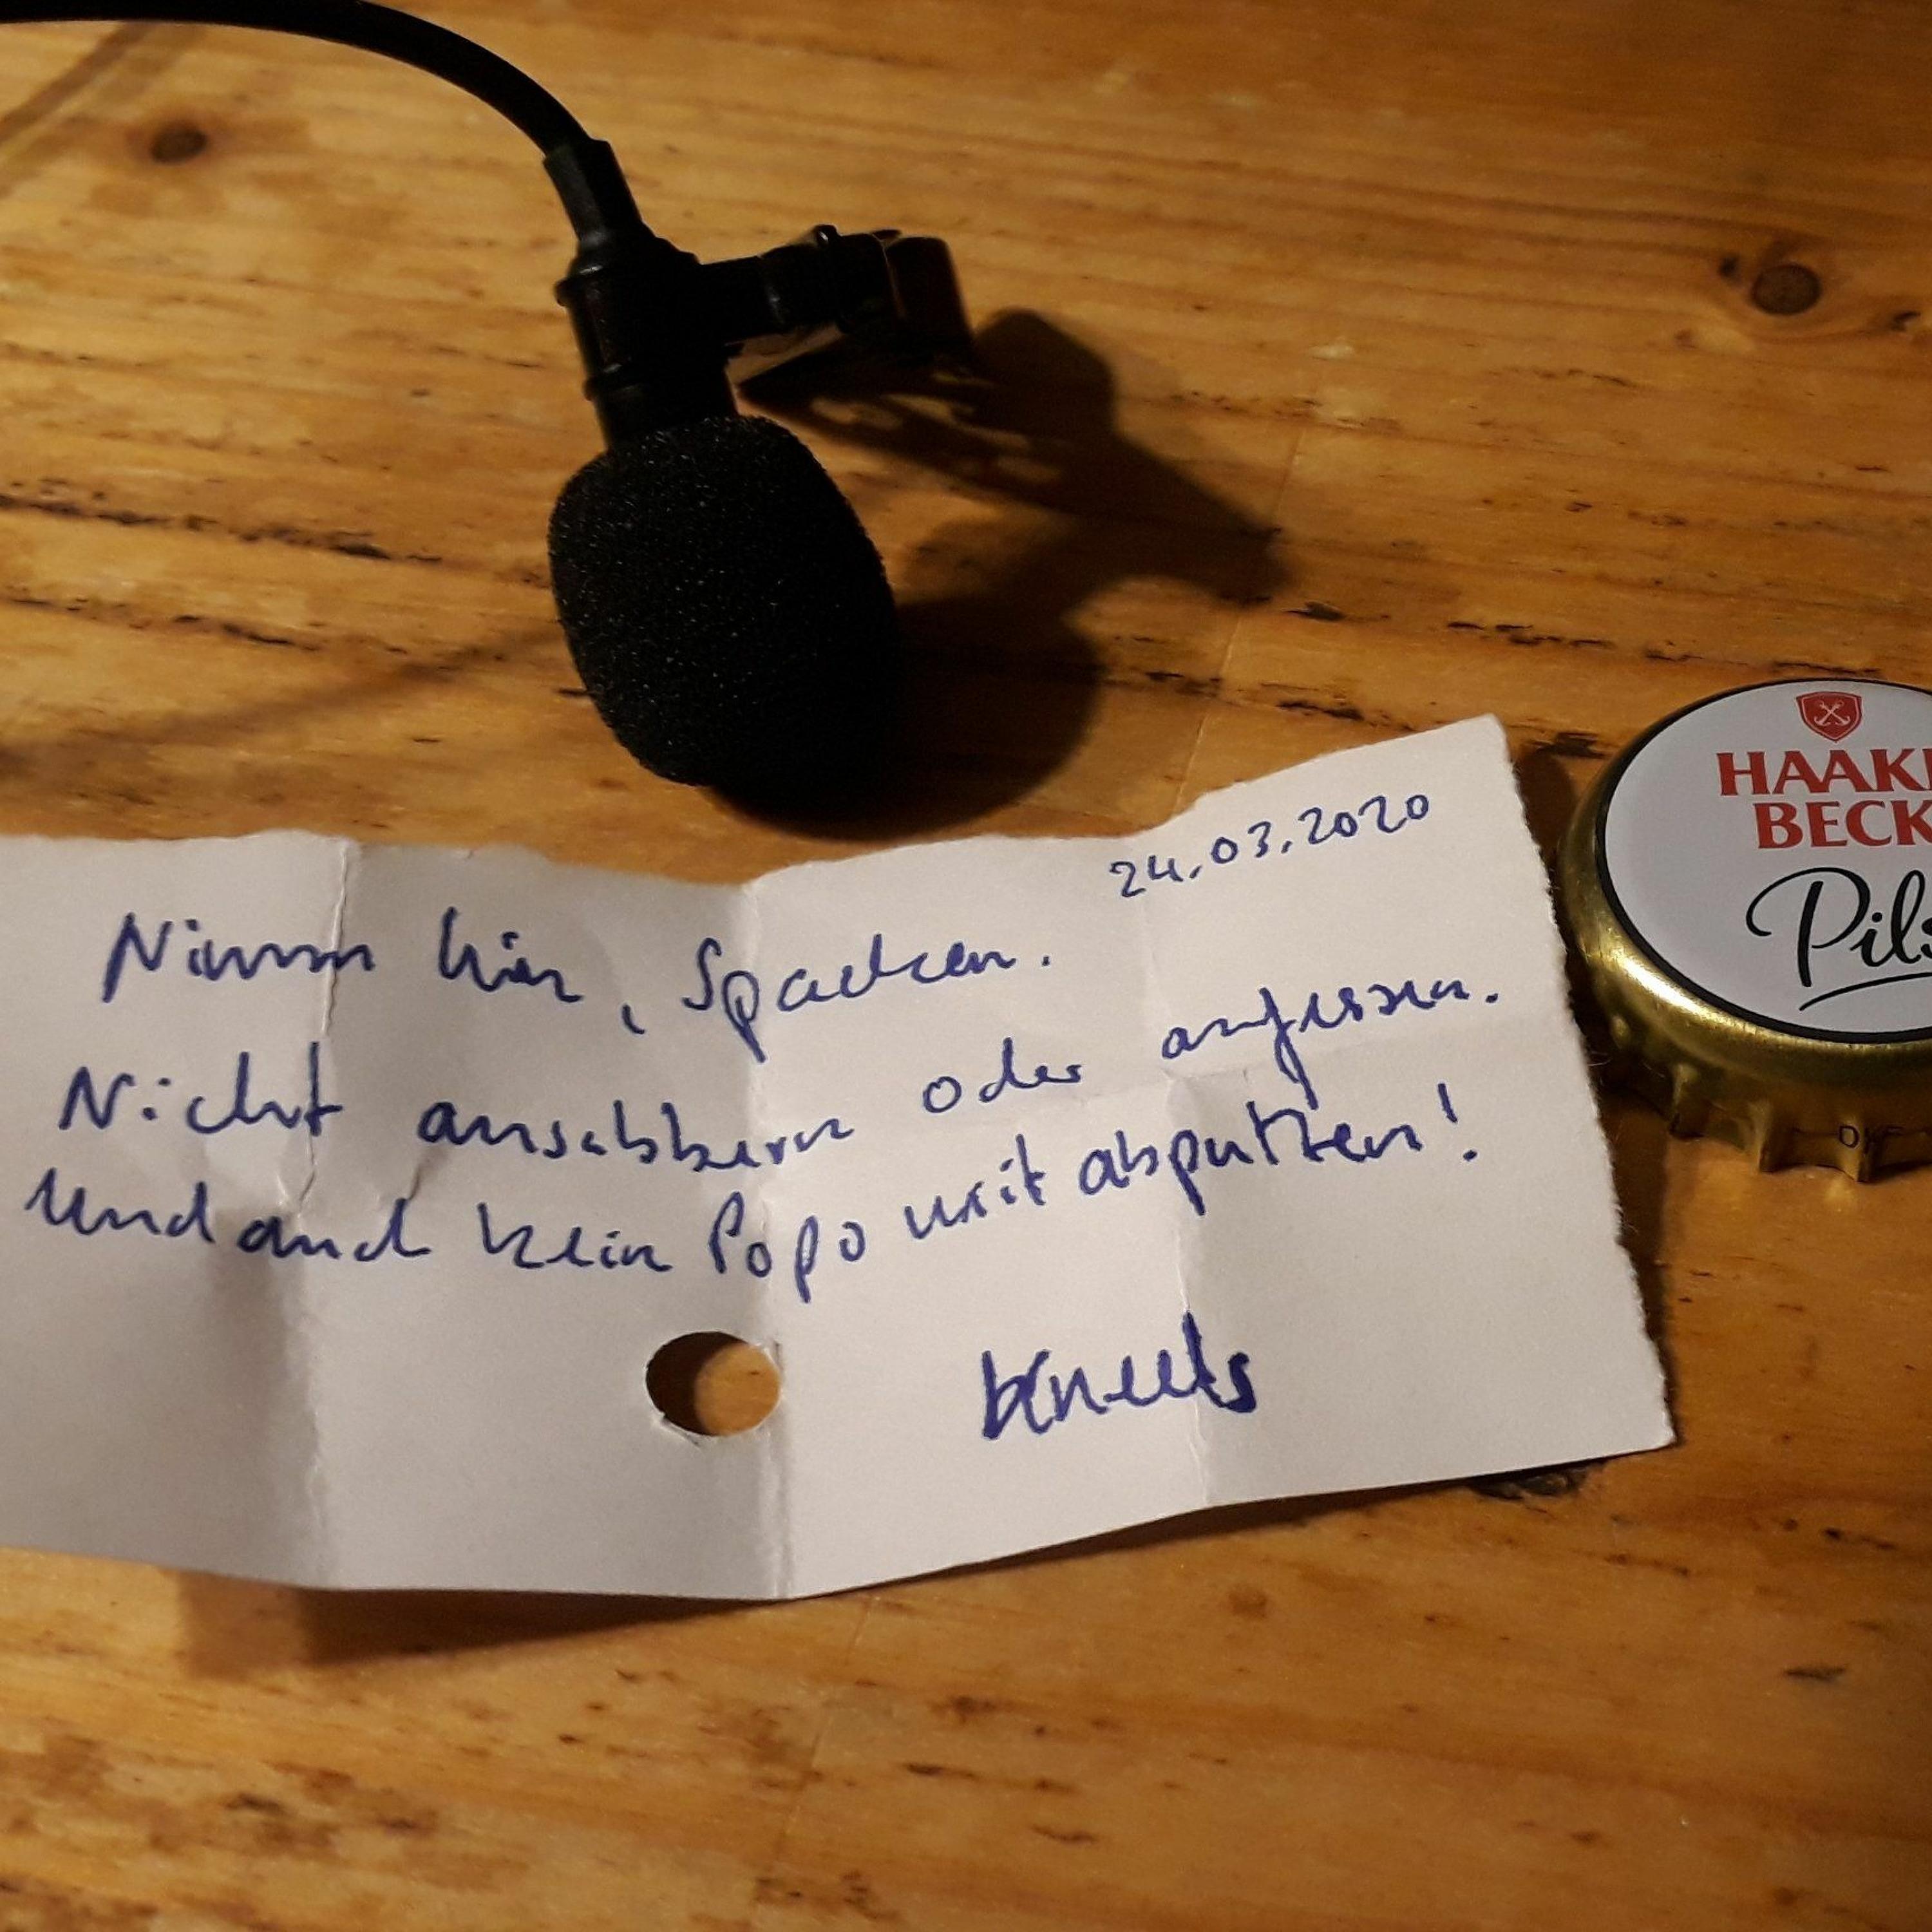 24.03.2020
Nimm hier, Spacken.
Nicht ansabbern oder anfressen.
Und auch kein Popo mit abputzen!
HAAK
BECK
Pils